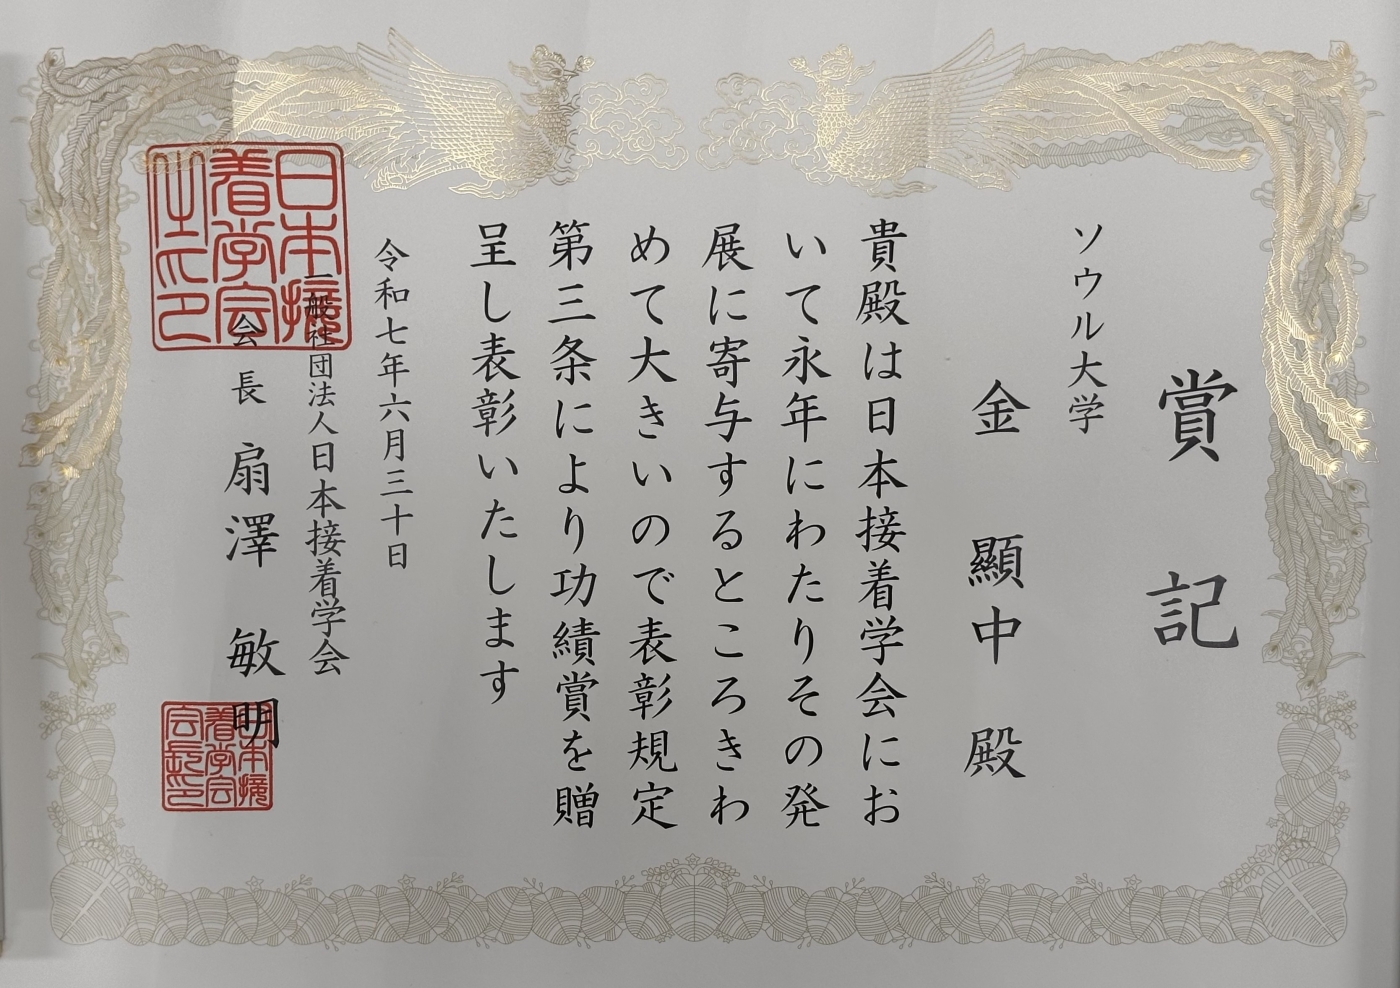 賞記
ソウル大学
金 顯中 殿
貴殿は日本接着学会にお
いて永年にわたりその発
展に寄与するところきわ
めて大きいので表彰規定
第三条により功績賞を贈
呈し表彰いたします
令和七年六月三十日
一般社団法人日本接着学会
会長 扇澤 敏明
日本接
着学会
之印
日本接
着学会
会長印